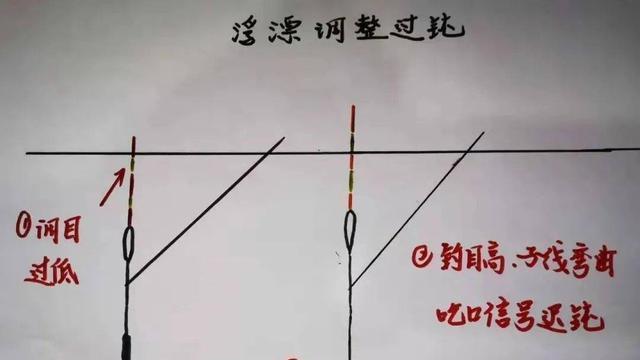 浮漂调整过钝
①调目
过低
②钓目高、子线弯曲
吃口信号迟钝